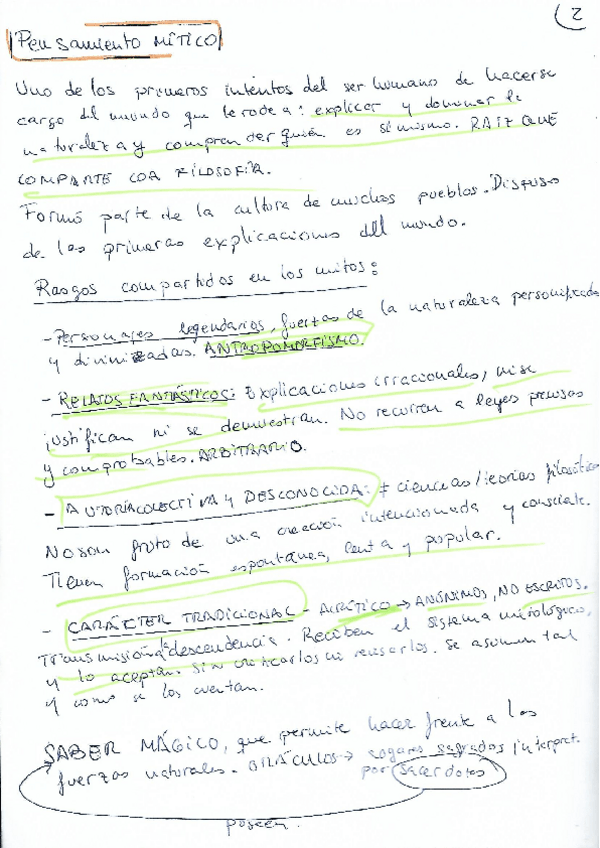 2
PENSAMIENTO MÍTICO
Uno de los primeros intentos del ser humano de hacerse
cargo del mundo que le rodea: explicar y dominar la
naturaleza y comprender quién es sí mismo. RAIZ QUE
COMPARTE CON FILOSOFÍA.
Formó parte de la cultura de muchos pueblos. Dispuso
de las primeras explicaciones del mundo.
Rasgos compartidos en los mitos:
- Personajes legendarios, fuerzas de la naturaleza personificadas
y divinizadas. ANTROPOMORFISMO.
- RELATOS FANTÁSTICOS: Explicaciones irracionales, ni se
justifican ni se demuestran. No recurren a leyes precisas
y comprobables. ARBITRARIO.
- AUTORÍA COLECTIVA Y DESCONOCIDA: ≠ ciencias/teorías filosóficas
No son fruto de una creación intencionada y consciente.
Tienen formación espontánea, lenta y popular.
- CARÁCTER TRADICIONAL - ACRÍTICO → ANÓNIMOS, NO ESCRITOS.
Transmisión a descendencia. Reciben el sistema mitológico,
y lo aceptan. Sin criticarlos ni revisarlos. Se asumen tal
y como se los cuentan.
SABER MÁGICO, que permite hacer frente a las
fuerzas naturales. ORÁCULOS → lugares sagrados interpret.
por sacerdotes
poseen.